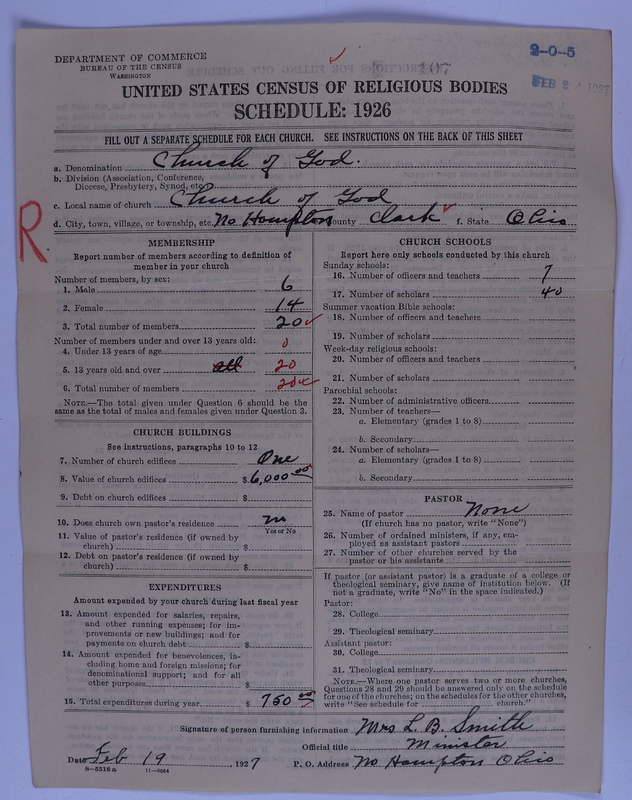 2-0-5
DEPARTMENT OF COMMERCE
BUREAU OF THE CENSUS
WASHINGTON
107
FEB 24 1927
UNITED STATES CENSUS OF RELIGIOUS BODIES
SCHEDULE: 1926
FILL OUT A SEPARATE SCHEDULE FOR EACH CHURCH. SEE INSTRUCTIONS ON THE BACK OF THIS SHEET
a. Denomination Church of God.
b. Division (Association, Conference,
Diocese, Presbytery, Synod, etc.
c. Local name of church Church of God
d. City, town, village, or township, etc. No Hampton County Clark f. State Ohio
R
MEMBERSHIP
Report number of members according to definition of
member in your church
Number of members, by sex:
1. Male 6
2. Female 14
3. Total number of members 20
Number of members under and over 13 years old:
4. Under 13 years of age 0
5. 13 years old and over all 20
6. Total number of members 20
NOTE.—The total given under Question 6 should be the
same as the total of males and females given under Question 3.
CHURCH BUILDINGS
See instructions, paragraphs 10 to 12
7. Number of church edifices One
8. Value of church edifices $ 6,000 00
9. Debt on church edifices $
10. Does church own pastor's residence no
Yes or No
11. Value of pastor's residence (if owned by
church) $
12. Debt on pastor's residence (if owned by
church) $
EXPENDITURES
Amount expended by your church during last fiscal year
13. Amount expended for salaries, repairs,
and other running expenses; for im-
provements or new buildings; and for
payments on church debt $
14. Amount expended for benevolences, in-
cluding home and foreign missions; for
denominational support; and for all
other purposes $
15. Total expenditures during year $ 750 00
CHURCH SCHOOLS
Report here only schools conducted by this church
Sunday schools:
16. Number of officers and teachers 7
17. Number of scholars 40
Summer vacation Bible schools:
18. Number of officers and teachers
19. Number of scholars
Week-day religious schools:
20. Number of officers and teachers
21. Number of scholars
Parochial schools:
22. Number of administrative officers
23. Number of teachers—
a. Elementary (grades 1 to 8)
b. Secondary
24. Number of scholars—
a. Elementary (grades 1 to 8)
b. Secondary
PASTOR
25. Name of pastor None
(If church has no pastor, write "None")
26. Number of ordained ministers, if any, em-
ployed as assistant pastors
27. Number of other churches served by the
pastor or his assistants
If pastor (or assistant pastor) is a graduate of a college or
theological seminary, give name of institution below. (If
not a graduate, write "No" in the space indicated.)
Pastor:
28. College
29. Theological seminary
Assistant pastor:
30. College
31. Theological seminary
NOTE.—Where one pastor serves two or more churches,
Questions 28 and 29 should be answered only on the schedule
for one of the churches; on the schedules for the other churches,
write "See schedule for church."
Signature of person furnishing information Mrs L. B. Smith
Official title Minister
Date Feb 19, 1927 P. O. Address No Hampton Ohio
8-5518 a 11-9084